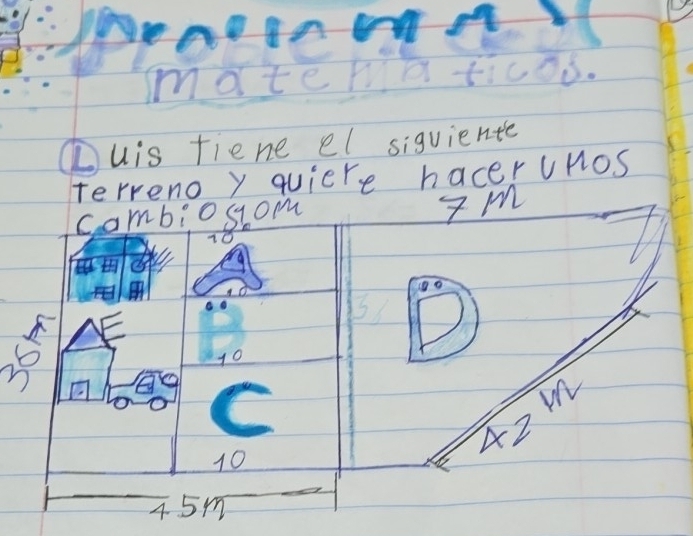 Problemas
matematicos.
Luis tiene el siguiente
terreno y quiere hacer unos
cambios.
7m
10
A
10
B
10
D
E
36m
C
42m
10
45m